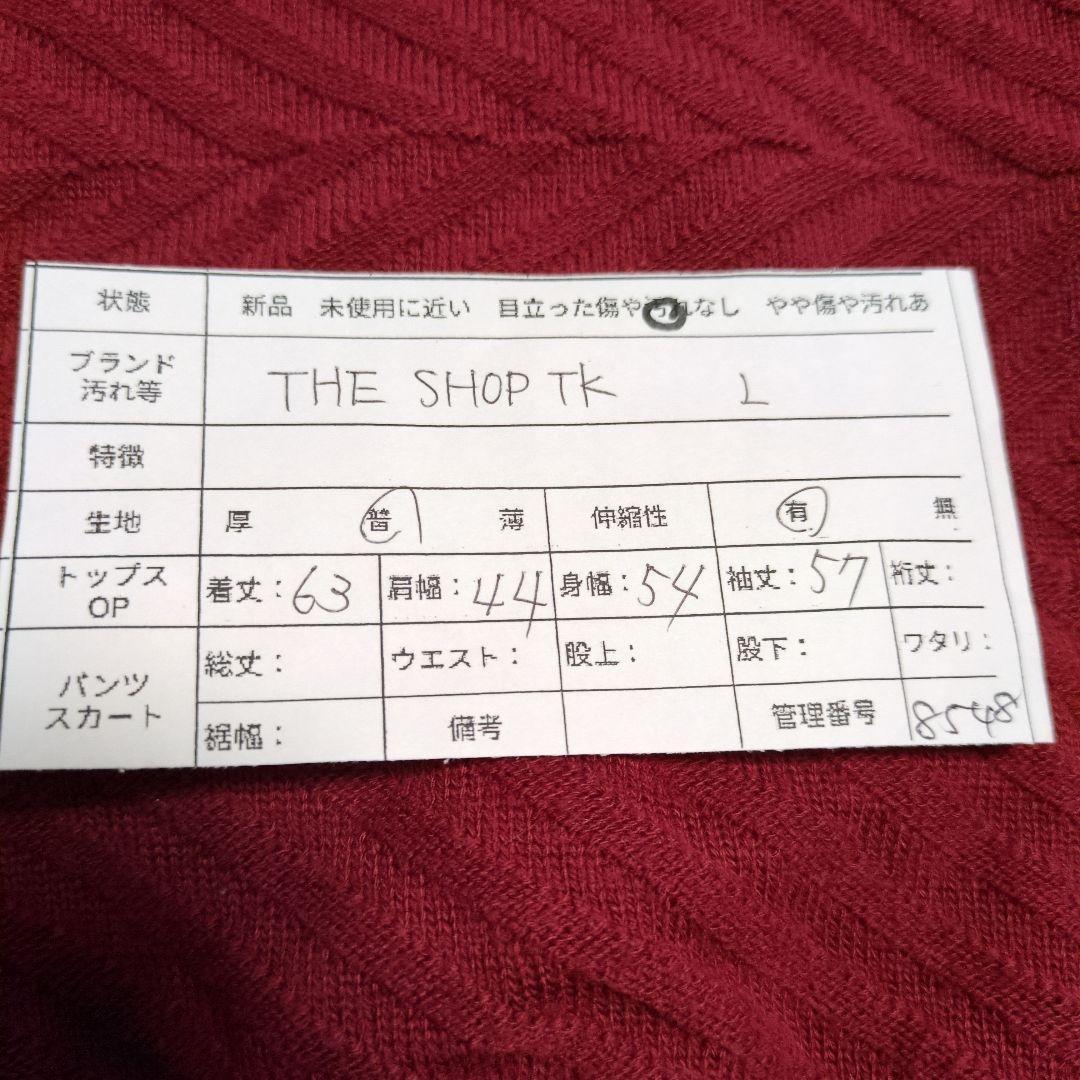 状態 新品 未使用に近い 目立った傷や汚れなし やや傷や汚れあ
ブランド 汚れ等 THE SHOP TK L
特徴
生地 厚 普 薄 伸縮性 有 無
トップス OP 着丈：63 肩幅：44 身幅：54 袖丈：57 裄丈：
パンツ スカート 総丈： ウエスト： 股上： 股下： ワタリ：
裾幅： 備考 管理番号 8548